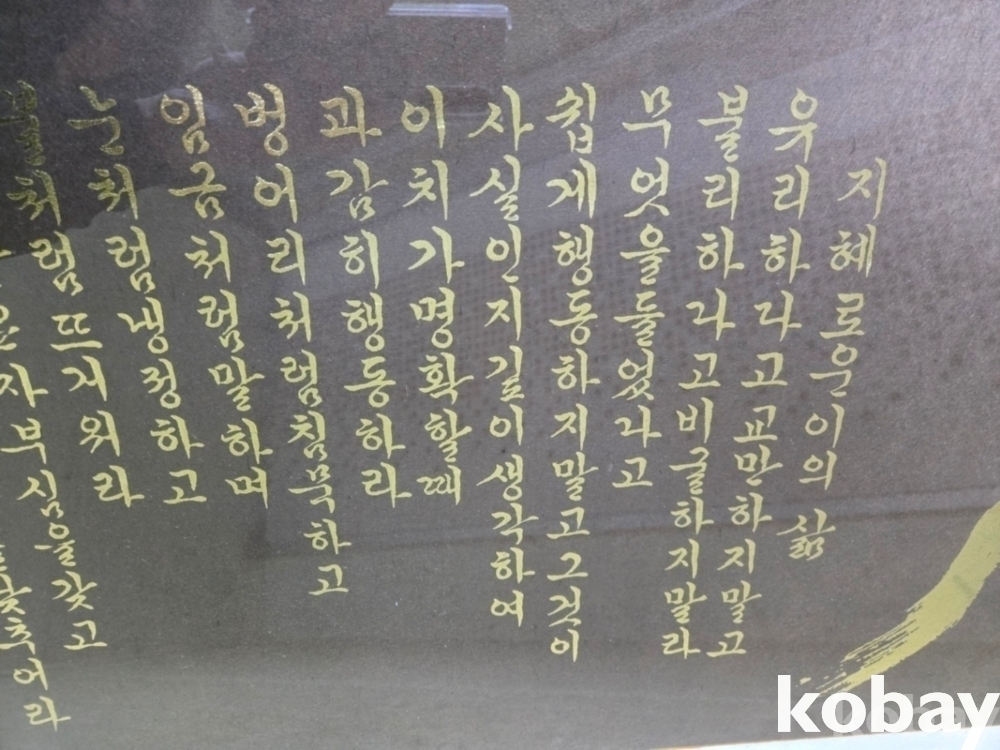 지혜로운이의 삶
유리하다고교만하지말고
불리하다고비굴하지말라
무엇을들었다고
쉽게행동하지말고그것이
사실인지깊이생각하여
이치가명확할때
과감히행동하라
벙어리처럼침묵하고
임금처럼말하며
눈처럼냉정하고
불처럼뜨거워라
자부심을갖고
낮추어라
kobay